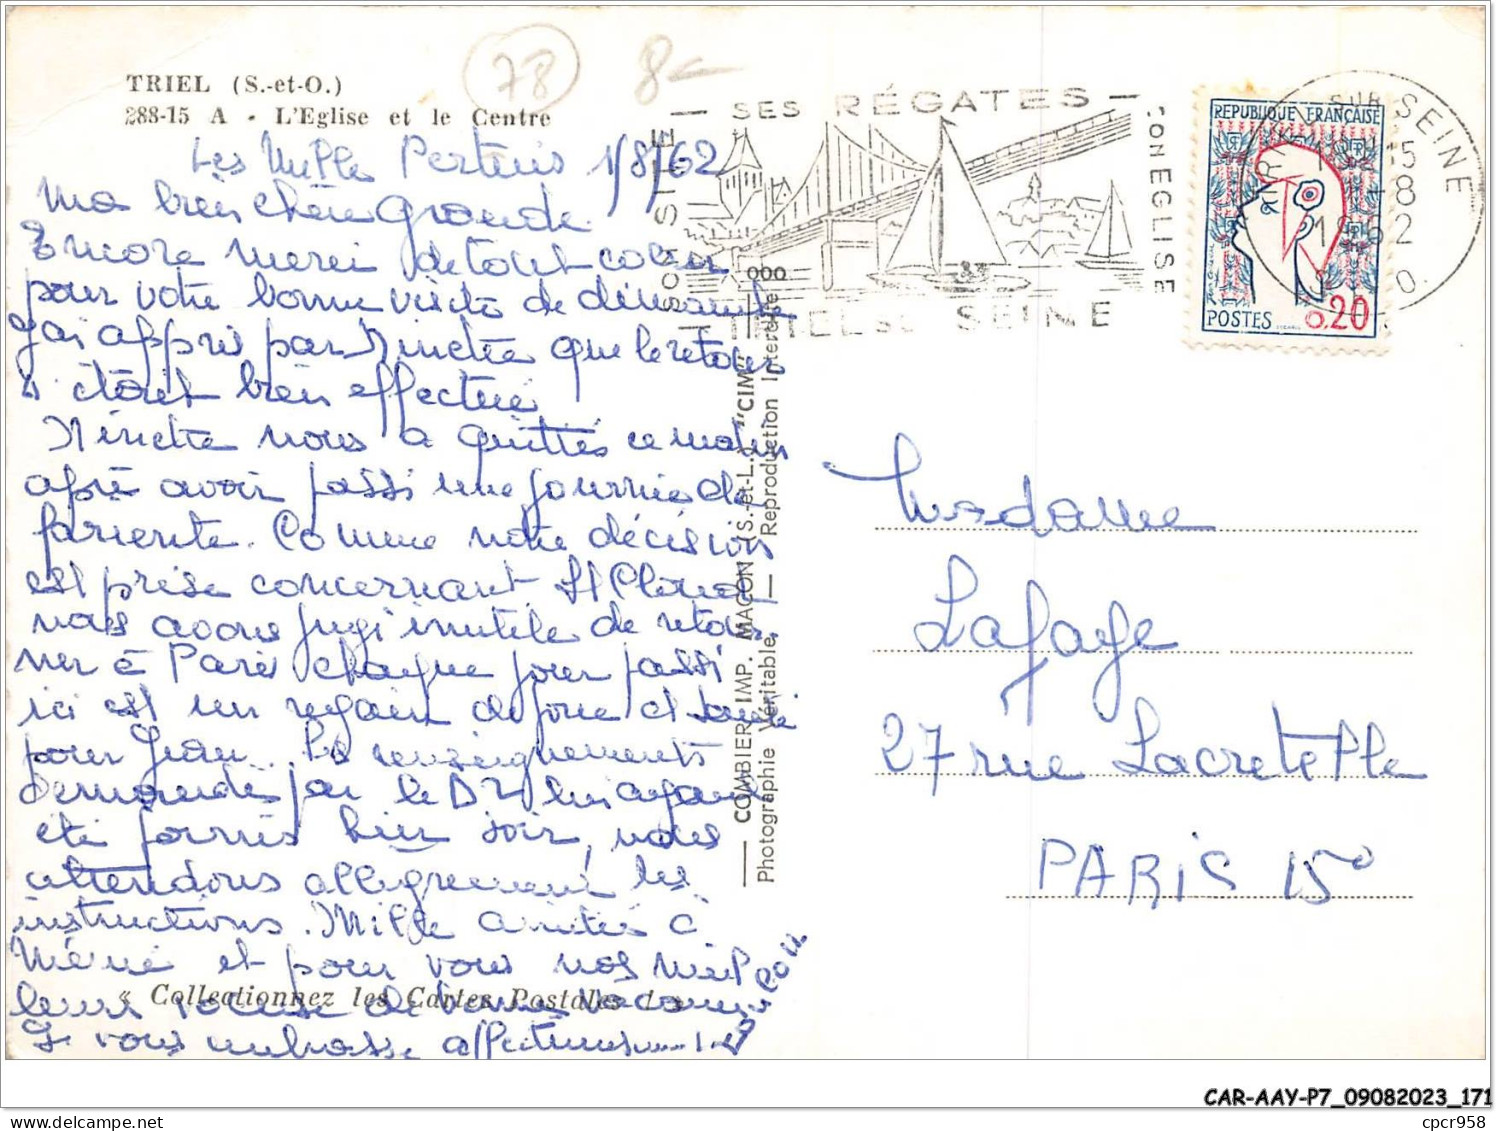 78
8
TRIEL (S.-et-O.)
288-15 A - L'Eglise et le Centre
Les Mille Pertuis 1/8/62
Ma bien chère Grande
Encore merci de tout cœur
pour votre bonne visite de dimanche
J'ai appris par Ninette que le retour
s'était bien effectué
Ninette nous a quittés ce matin
après avoir passé une journée de
farniente. Comme notre décision
est prise concernant St Cloud
nous avons jugé inutile de retour
ner à Paris chaque jour passé
ici est un regain de joie et santé
pour Jean. Les renseignements
demandés par le Dr lui ayant
été fournis hier soir, nous
attendons allègrement les
instructions. Mille amitiés à
Mémé et pour vous nos meil
leurs
Je vous embrasse affectueusement
« Collectionnez les Cartes Postales
COMBIER IMP. MACON (S.-et-L.) "CIM"
Photographie Véritable — Reproduction Interdite
SES RÉGATES
SON SITE
SON EGLISE
TRIEL SUR SEINE
TRIEL SUR SEINE
15
8
1962
S. O.
REPUBLIQUE FRANÇAISE
POSTES
0.20
Madame
Lafaye
27 rue Lacretelle
PARIS 15°
CAR-AAY-P7_09082023_171
cpcr958